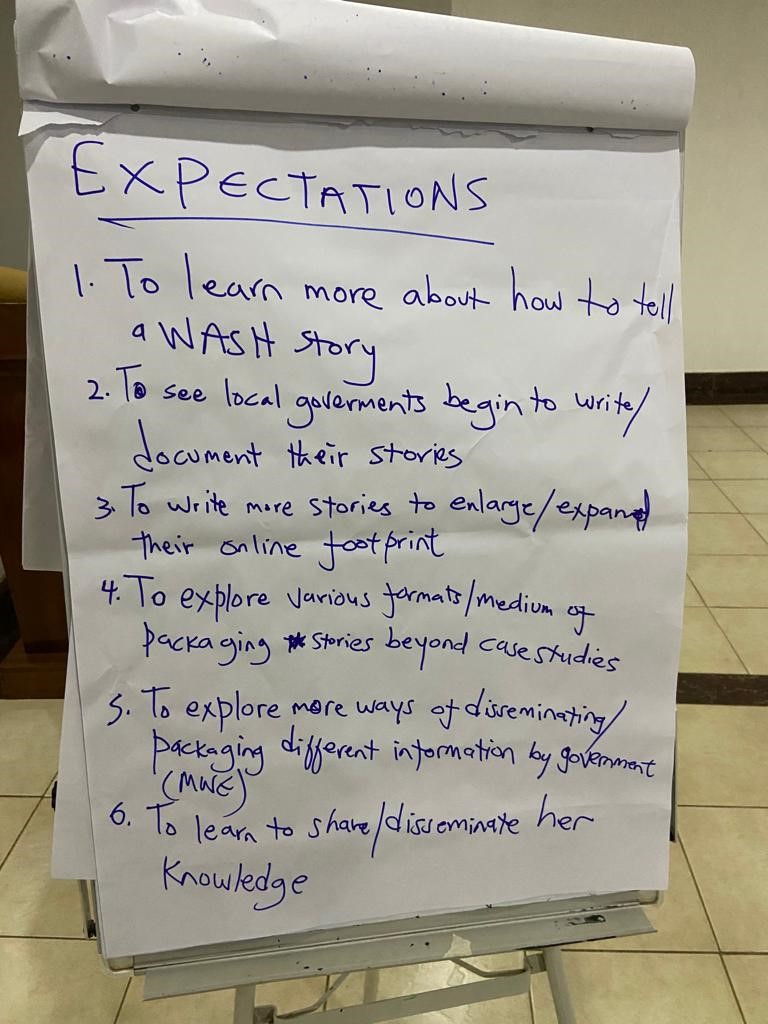 EXPECTATIONS
1. To learn more about how to tell
a WASH story
2. To see local goverments begin to write/
document their stories
3. To write more stories to enlarge/expand
their online footprint
4. To explore various formats/medium of
packaging stories beyond case studies
5. To explore more ways of disseminating/
packaging different information by government
(MWE)
6. To learn to share/disseminate her
knowledge